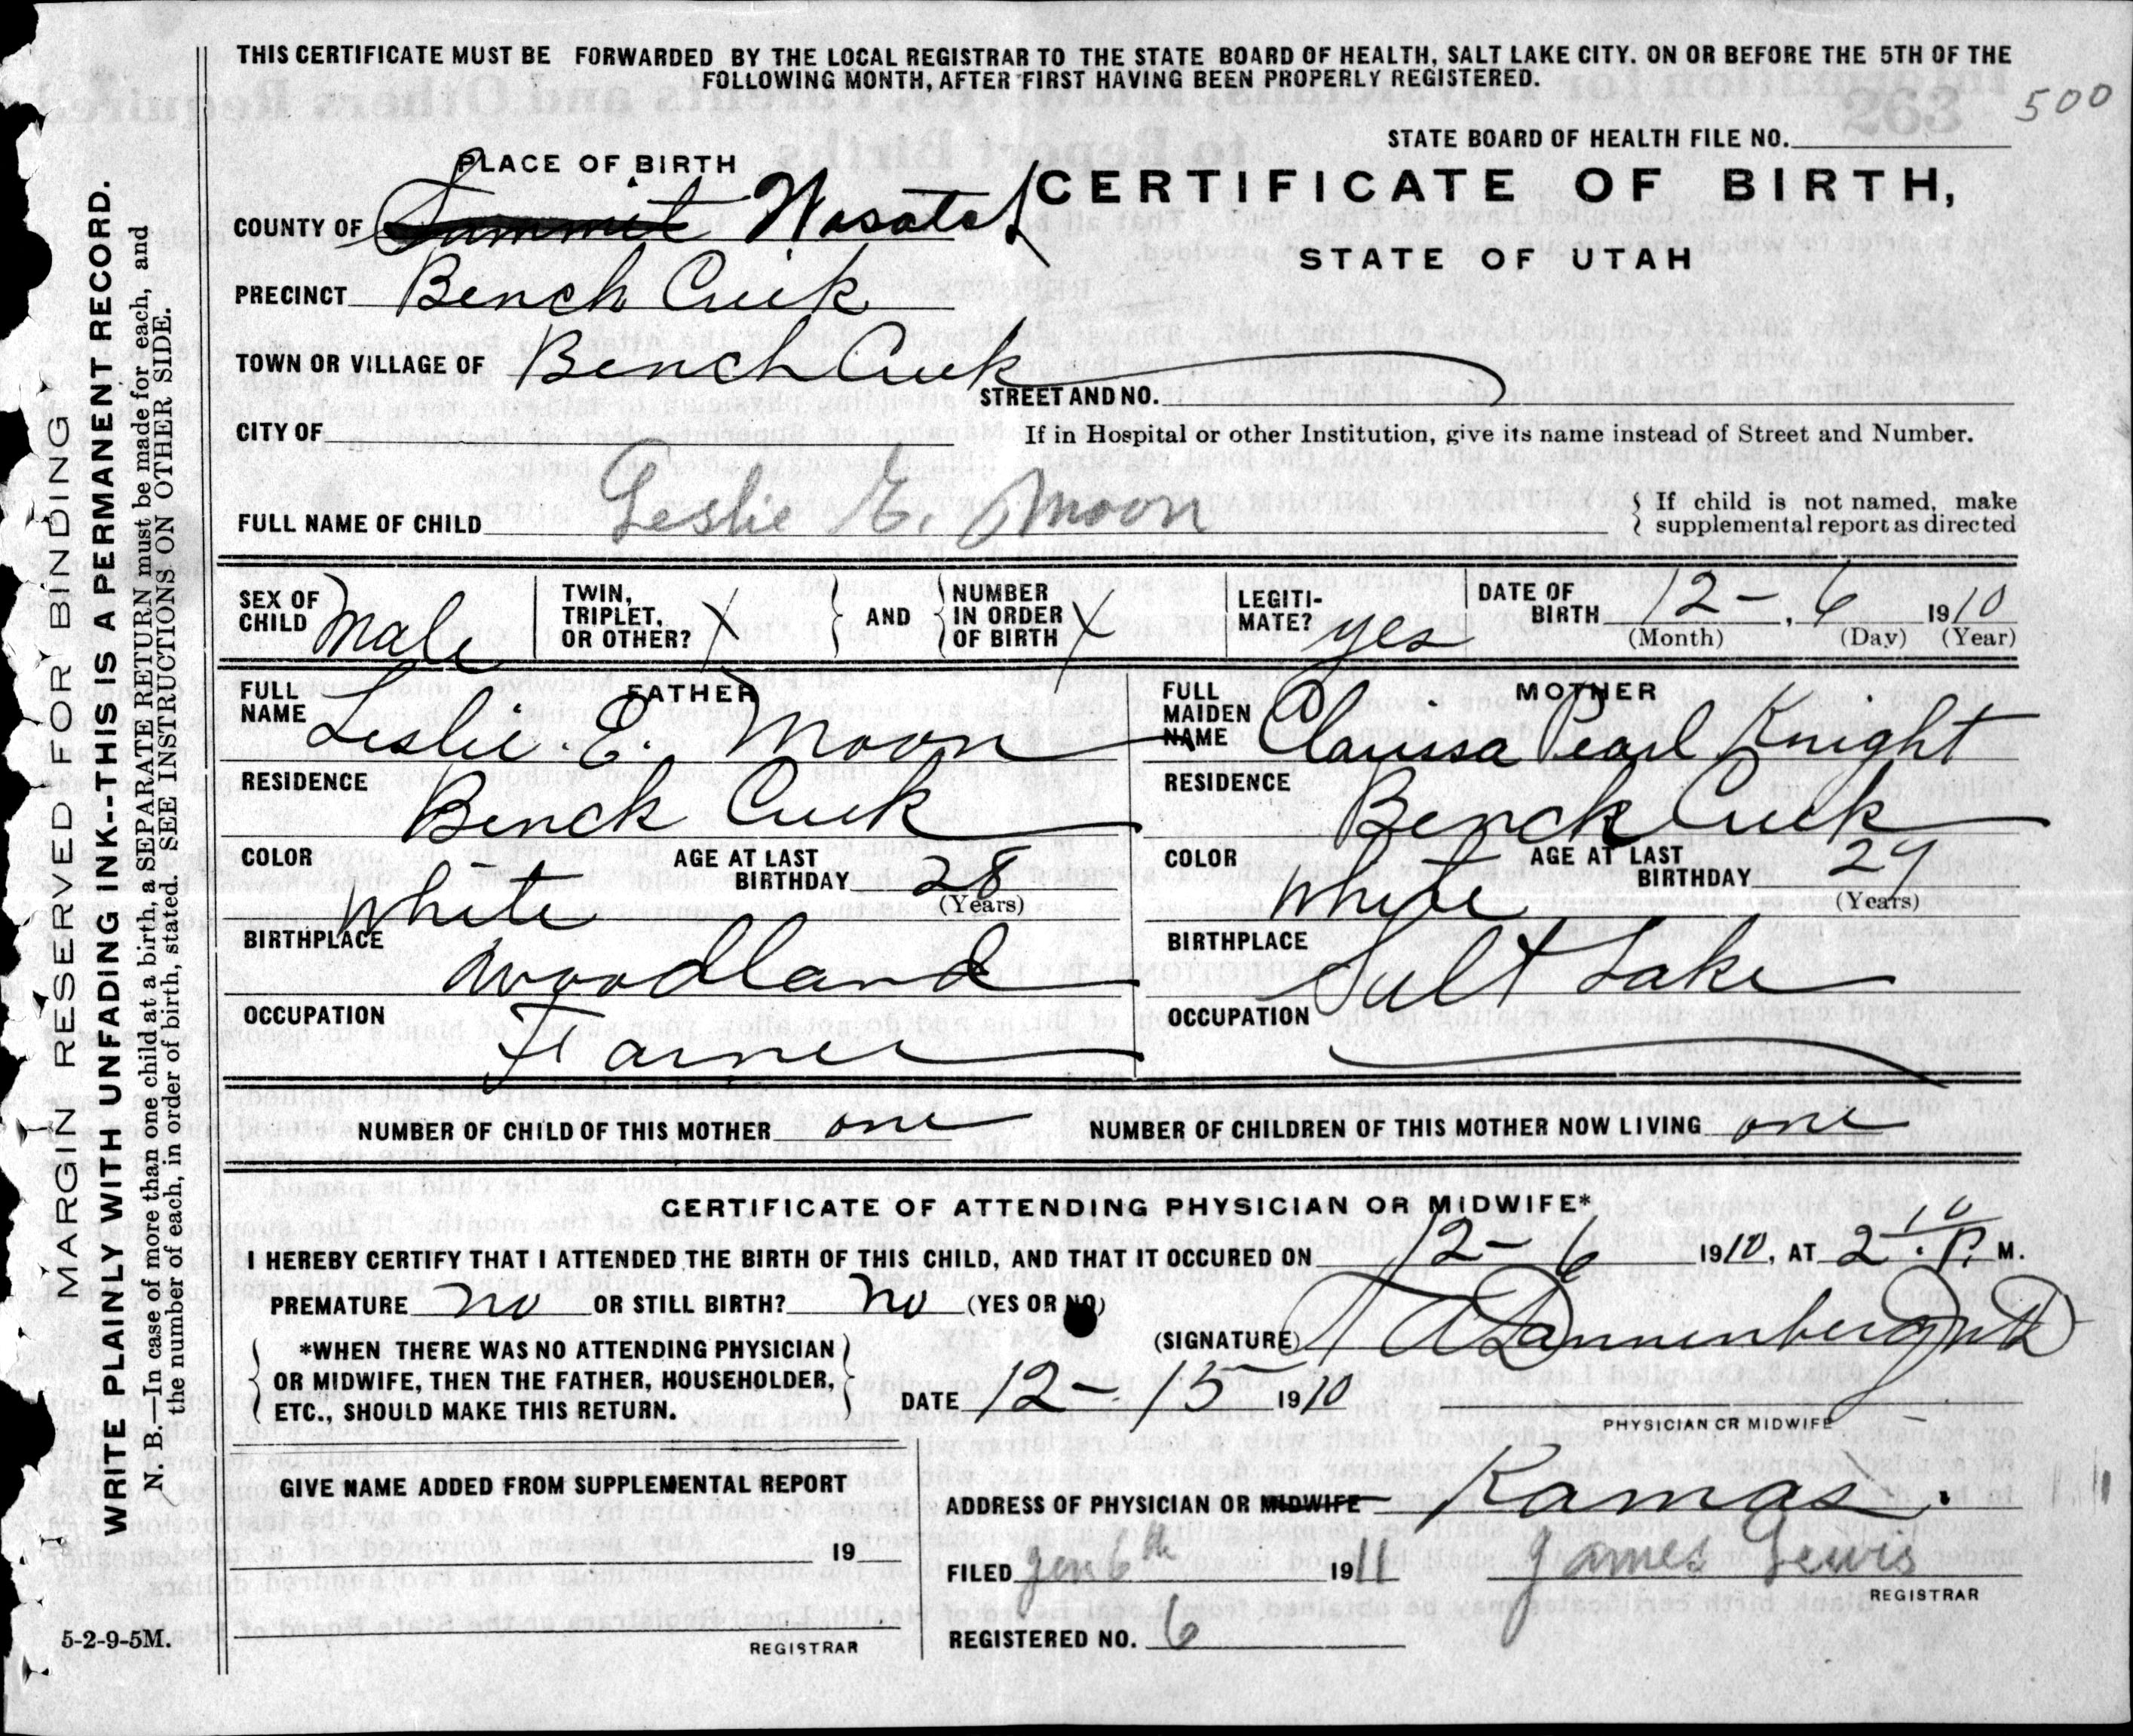 THIS CERTIFICATE MUST BE FORWARDED BY THE LOCAL REGISTRAR TO THE STATE BOARD OF HEALTH, SALT LAKE CITY. ON OR BEFORE THE 5TH OF THE
FOLLOWING MONTH, AFTER FIRST HAVING BEEN PROPERLY REGISTERED.
263 500
STATE BOARD OF HEALTH FILE NO.
PLACE OF BIRTH
CERTIFICATE OF BIRTH,
STATE OF UTAH
COUNTY OF Summit Wasatch
PRECINCT Bench Creek
TOWN OR VILLAGE OF Bench Creek
STREET AND NO.
CITY OF
If in Hospital or other Institution, give its name instead of Street and Number.
FULL NAME OF CHILD Leslie E. Moon
If child is not named, make
supplemental report as directed
SEX OF CHILD Male
TWIN, TRIPLET, OR OTHER? X
AND
NUMBER IN ORDER OF BIRTH X
LEGITI-MATE? yes
DATE OF BIRTH 12 - , 6 1910
(Month) (Day) (Year)
FATHER
FULL NAME Leslie. E. Moon
RESIDENCE Bench Creek
COLOR White
AGE AT LAST BIRTHDAY 28
(Years)
BIRTHPLACE Woodland
OCCUPATION Farmer
MOTHER
FULL MAIDEN NAME Clarissa Pearl Knight
RESIDENCE Bench Creek
COLOR White
AGE AT LAST BIRTHDAY 29
(Years)
BIRTHPLACE Salt Lake
OCCUPATION
NUMBER OF CHILD OF THIS MOTHER one
NUMBER OF CHILDREN OF THIS MOTHER NOW LIVING one
CERTIFICATE OF ATTENDING PHYSICIAN OR MIDWIFE*
I HEREBY CERTIFY THAT I ATTENDED THE BIRTH OF THIS CHILD, AND THAT IT OCCURED ON 12 - 6 1910, AT 2 10 P. M.
PREMATURE no OR STILL BIRTH? no (YES OR NO)
*WHEN THERE WAS NO ATTENDING PHYSICIAN
OR MIDWIFE, THEN THE FATHER, HOUSEHOLDER,
ETC., SHOULD MAKE THIS RETURN.
(SIGNATURE) Dannenberg MD
DATE 12 - 15 1910
PHYSICIAN OR MIDWIFE
GIVE NAME ADDED FROM SUPPLEMENTAL REPORT
19
REGISTRAR
ADDRESS OF PHYSICIAN OR MIDWIFE Kamas.
FILED Jan 6th 1911 James Lewis
REGISTRAR
REGISTERED NO. 6
MARGIN RESERVED FOR BINDING
WRITE PLAINLY WITH UNFADING INK--THIS IS A PERMANENT RECORD.
N. B.—In case of more than one child at a birth, a SEPARATE RETURN must be made for each, and
the number of each, in order of birth, stated. SEE INSTRUCTIONS ON OTHER SIDE.
5-2-9-5M.